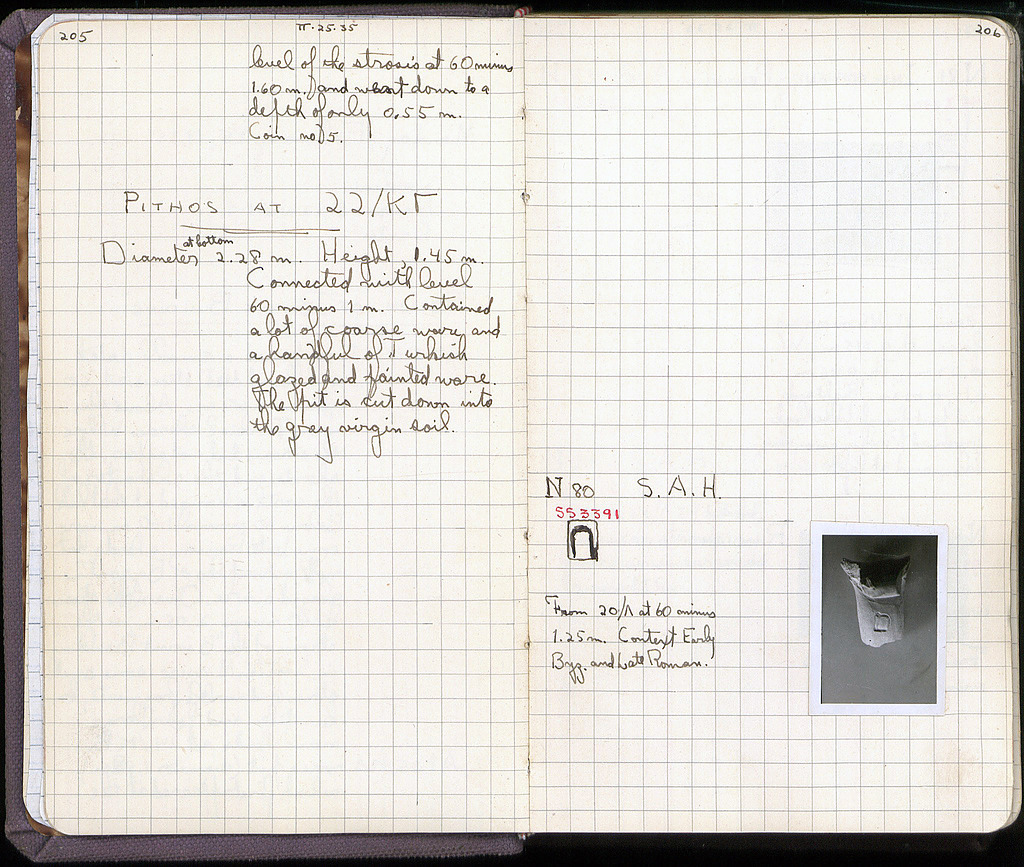 205
II·25·35
level of the strosis at 60 minus
1.60 m.) and went down to a
depth of only 0.55 m.
Coin no. 5.
PITHOS AT 22/ΚΓ
Diameter at bottom 2.28 m. Height, 1.45 m.
Connected with level
60 minus 1 m. Contained
a lot of coarse ware and
a handful of Turkish
glazed and painted ware.
The pit is cut down into
the grey virgin soil.
206
N 80 S.A.H.
553391
From 20/Λ at 60 minus
1.25 m. Context Early
Byz. and Late Roman.